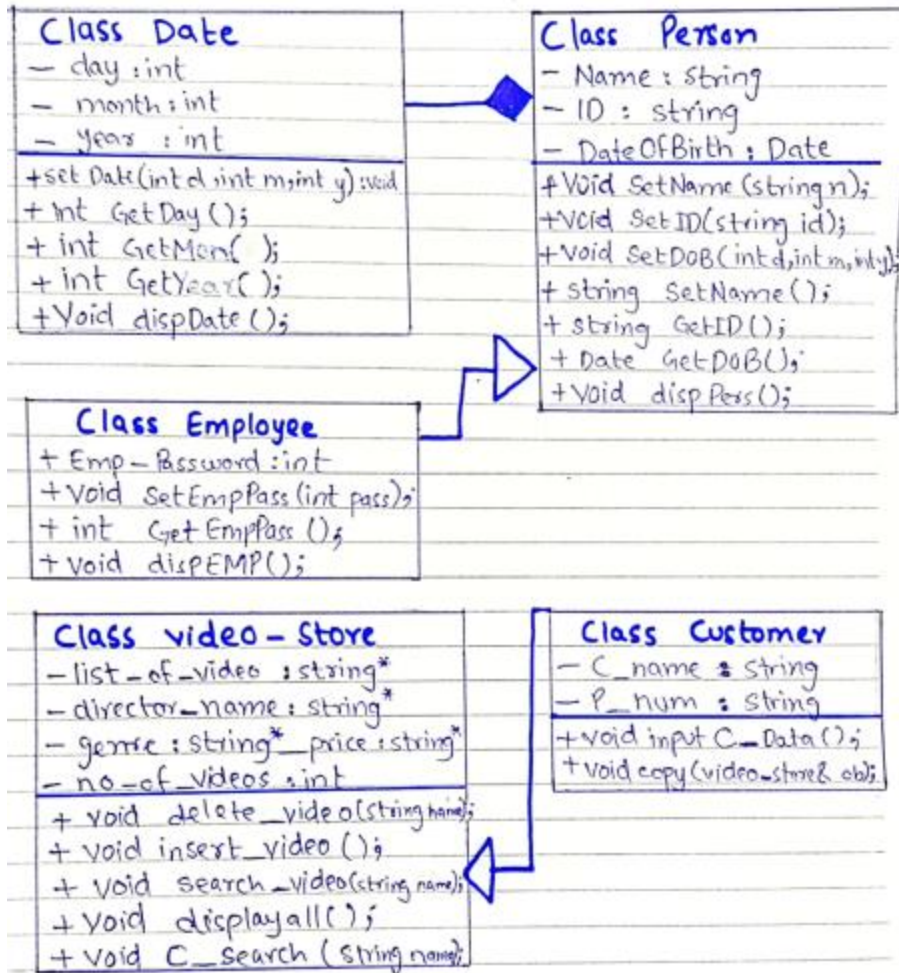 Class Date
- day : int
- month : int
- year : int
+set Date(int d, int m, int y) : void
+ int GetDay();
+ int GetMon( );
+ int GetYear( );
+ Void dispDate();
Class Person
- Name : string
- ID : string
- DateOfBirth : Date
+ Void SetName (string n);
+void SetID(string id);
+Void SetDOB(int d, int m, int y);
+ string SetName();
+ string GetID();
+ Date GetDOB();
+ Void dispPers();
Class Employee
+ Emp-Password : int
+ Void SetEmpPass(int pass);
+ int Get EmpPass();
+ Void dispEMP();
Class video-Store
- list-of-video : string*
- director_name : string*
- genre : string* _ price : string*
- no_of_videos : int
+ void delete_video(string name);
+ void insert_video();
+ void search_video(string name);
+ Void displayall();
+ Void C_Search (string name);
Class Customer
- C_name : string
- P_num : string
+void input C_Data();
+void copy(video_store& ob);